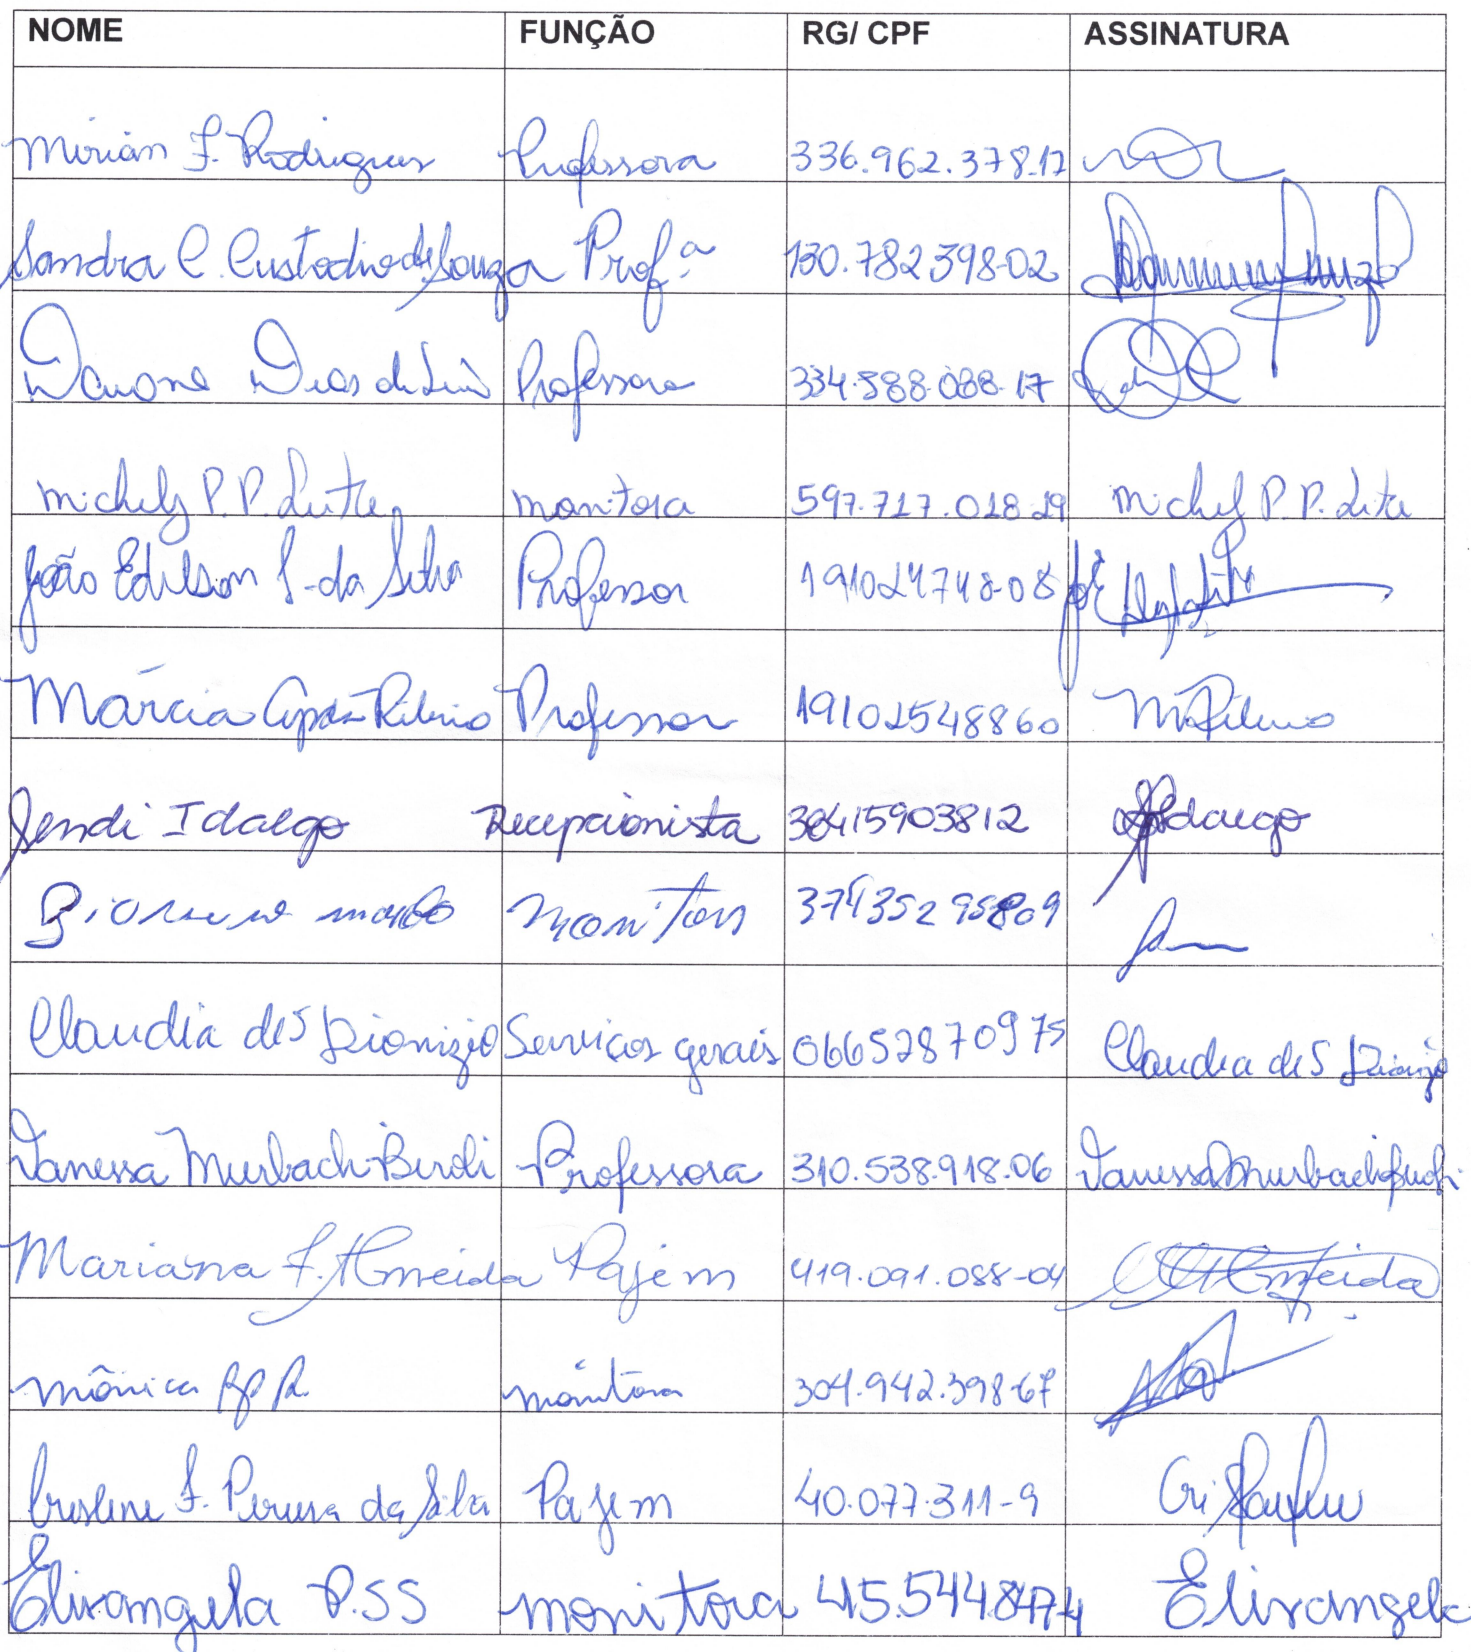 NOME FUNÇÃO RG/ CPF ASSINATURA
Mirian F. Rodrigues Professora 336.962.378.17
Sandra C. Custodio de Souza Profª 130.782398-02
Dias de Professora 334.588.088.17
Michely P.P. Leite monitora 597.717.018.29 Michely P.P. Leite
João Edilson S. da Silva Professor 191024748-08
Márcia Apda Ribeiro Professor 19102548860 M Ribeiro
Sendi Idalgo Recepcionista 38415903812 Idalgo
Monitor 37435295809
Claudia de S Dionizio Serviços gerais 06652870975 Claudia de S Dionizio
Vanessa Murbach Birdi Professora 310.538.918.06 Vanessa Murbach
Mariana F. Almeida Pajem 419.091.088-04 Almeida
Mônica Ap R. monitora 304.942.398-67
F. Pereira da Silva Pajem 40.077.311-9 Cris
Elisangela P.SS monitora 45.5448474 Elisangela